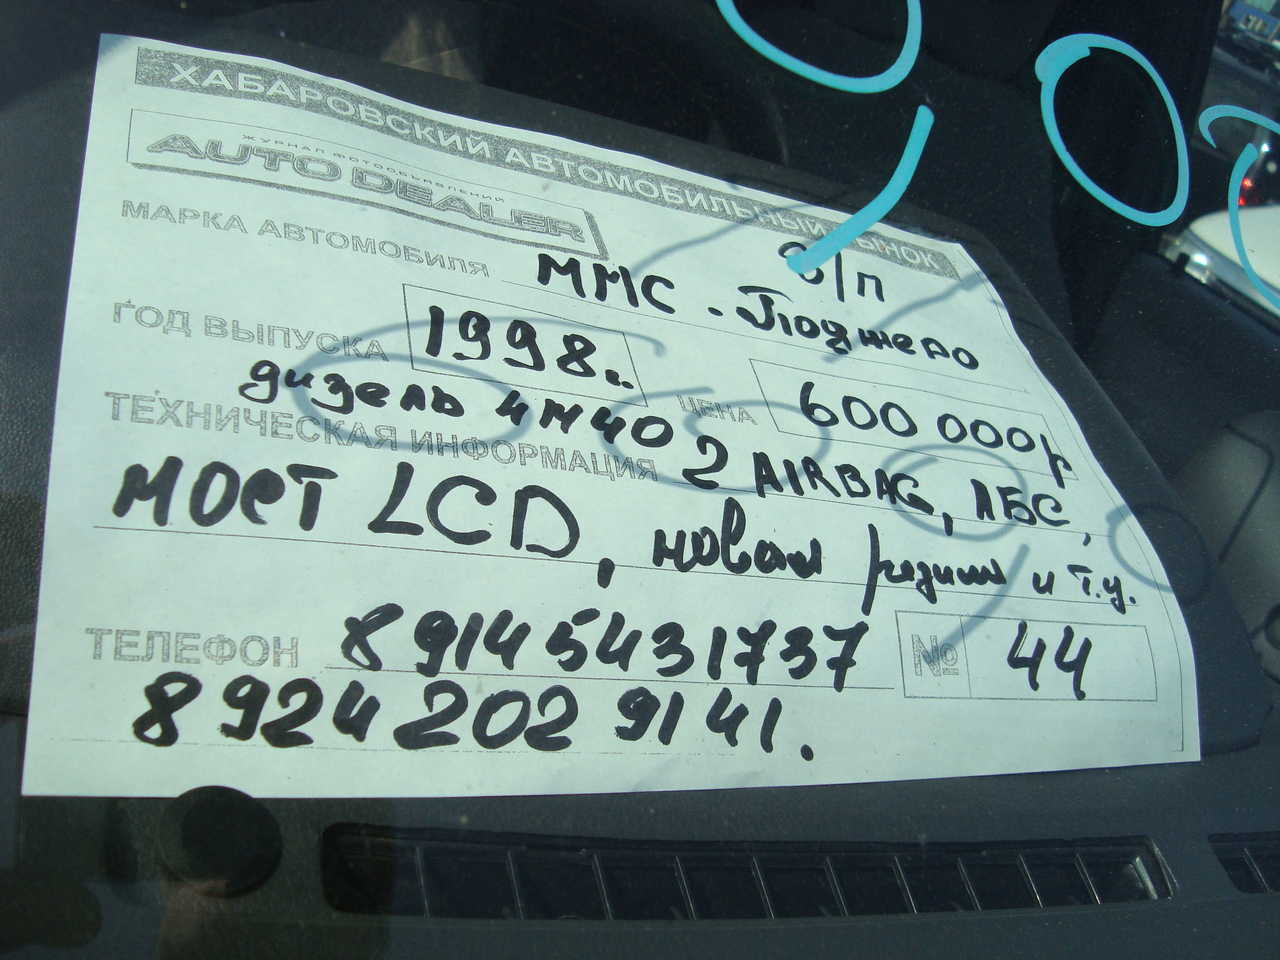 ХАБАРОВСКИЙ АВТОМОБИЛЬНЫЙ РЫНОК
ЖУРНАЛ ФОТООБЪЯВЛЕНИЙ
AUTO DEALER
б/п
МАРКА АВТОМОБИЛЯ ММС - Паджеро
ГОД ВЫПУСКА 1998г. ЦЕНА 600 000р
дизель 4М40
ТЕХНИЧЕСКАЯ ИНФОРМАЦИЯ 2 AIRBAG, АБС,
мост LCD, новая резина и т.д.
ТЕЛЕФОН 89145431737 № 44
8924 202 9141.